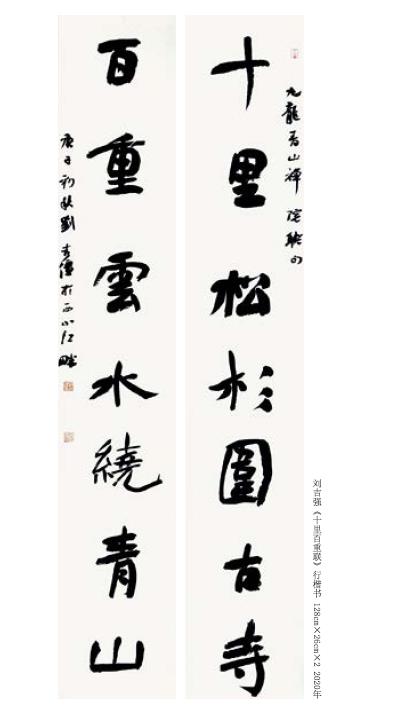 九龍青山禪院聯句
十里松杉圍古寺
百重雲水繞青山
庚子初秋劉吉强於西小江畔
刘吉强《十里百重联》行楷书 128cm×26cm×2 2020年